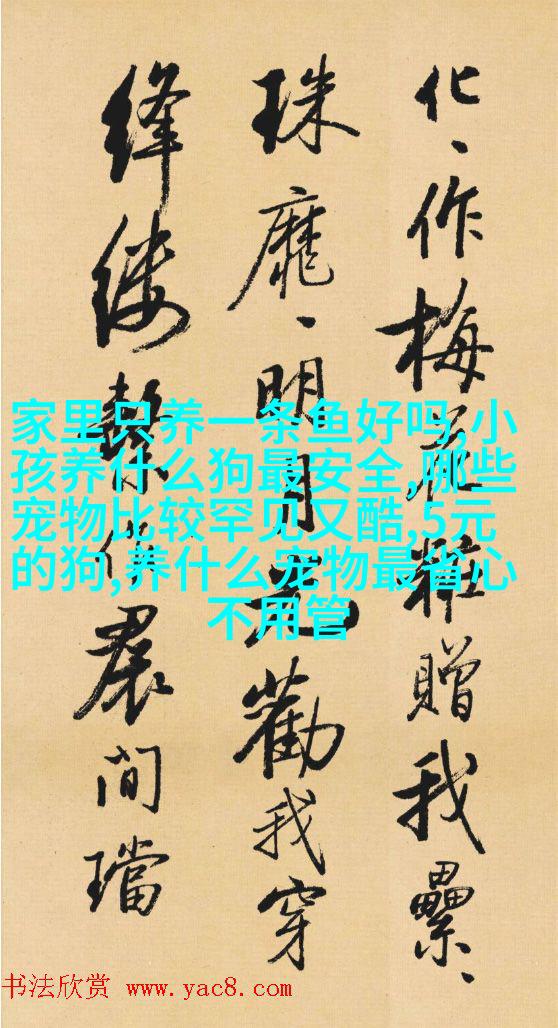 化、作梅花粧贈我纍、
珠靡、明月光勸我穿
絳縷繫作裠間璫
家里只养一条鱼好吗,小
孩养什么狗最安全,哪些
宠物比较罕见又酷,5元
的狗,养什么宠物最省心
不用管
书法欣赏 www.yac8.com